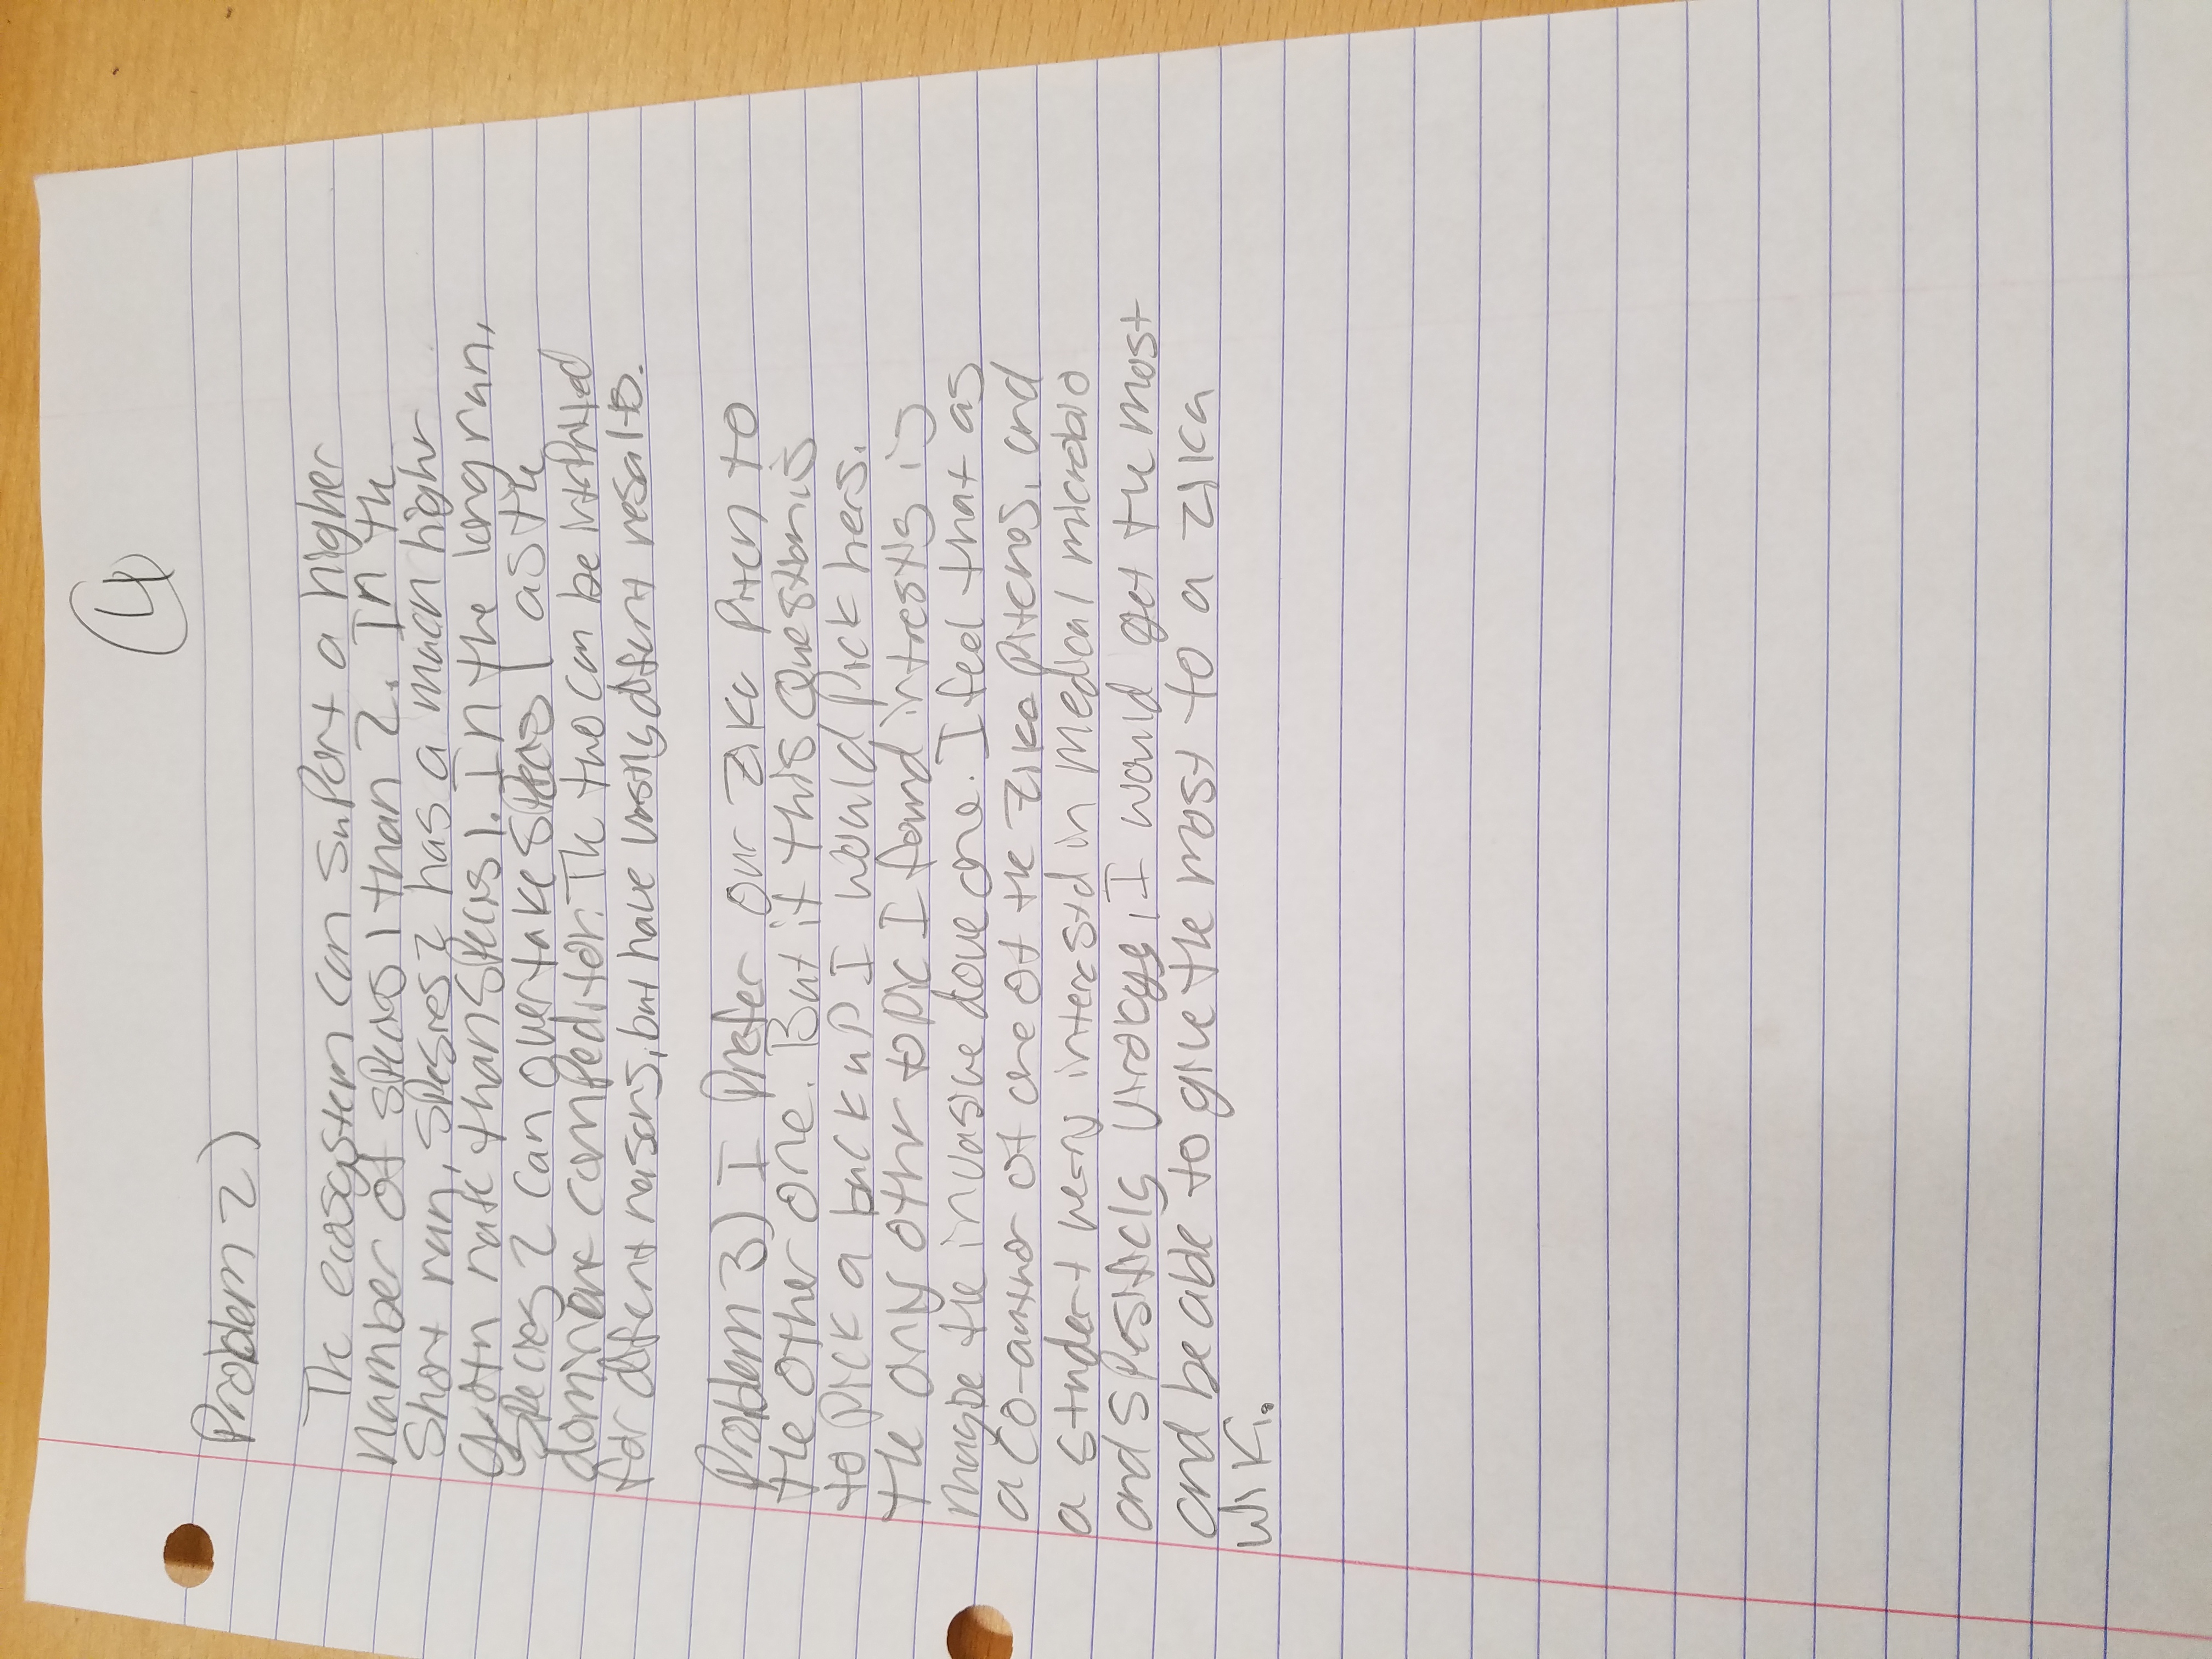 4
Problem 2)
The ecosystem can suport a higher
number of species 1 than 2. In the
Short run, spesies 2 has a much higher
groth rate than species 1. In the long run,
species 2 can overtake species 1 as the
dominant compeditor. The two can be
for difent reasons, but have vastly difent results.
Problem 3) I prefer our Zika pitch to
the other one. But if this question is
to pick a backup I would pick hers.
the only other topic I found intrestig is
maybe the invasive dove one. I feel that as
a co-author of one of the Zika pitches, and
a student very interestd in medical microbio
and spesificly, I would get the most
and be able to give the most to a Zika
wiki.